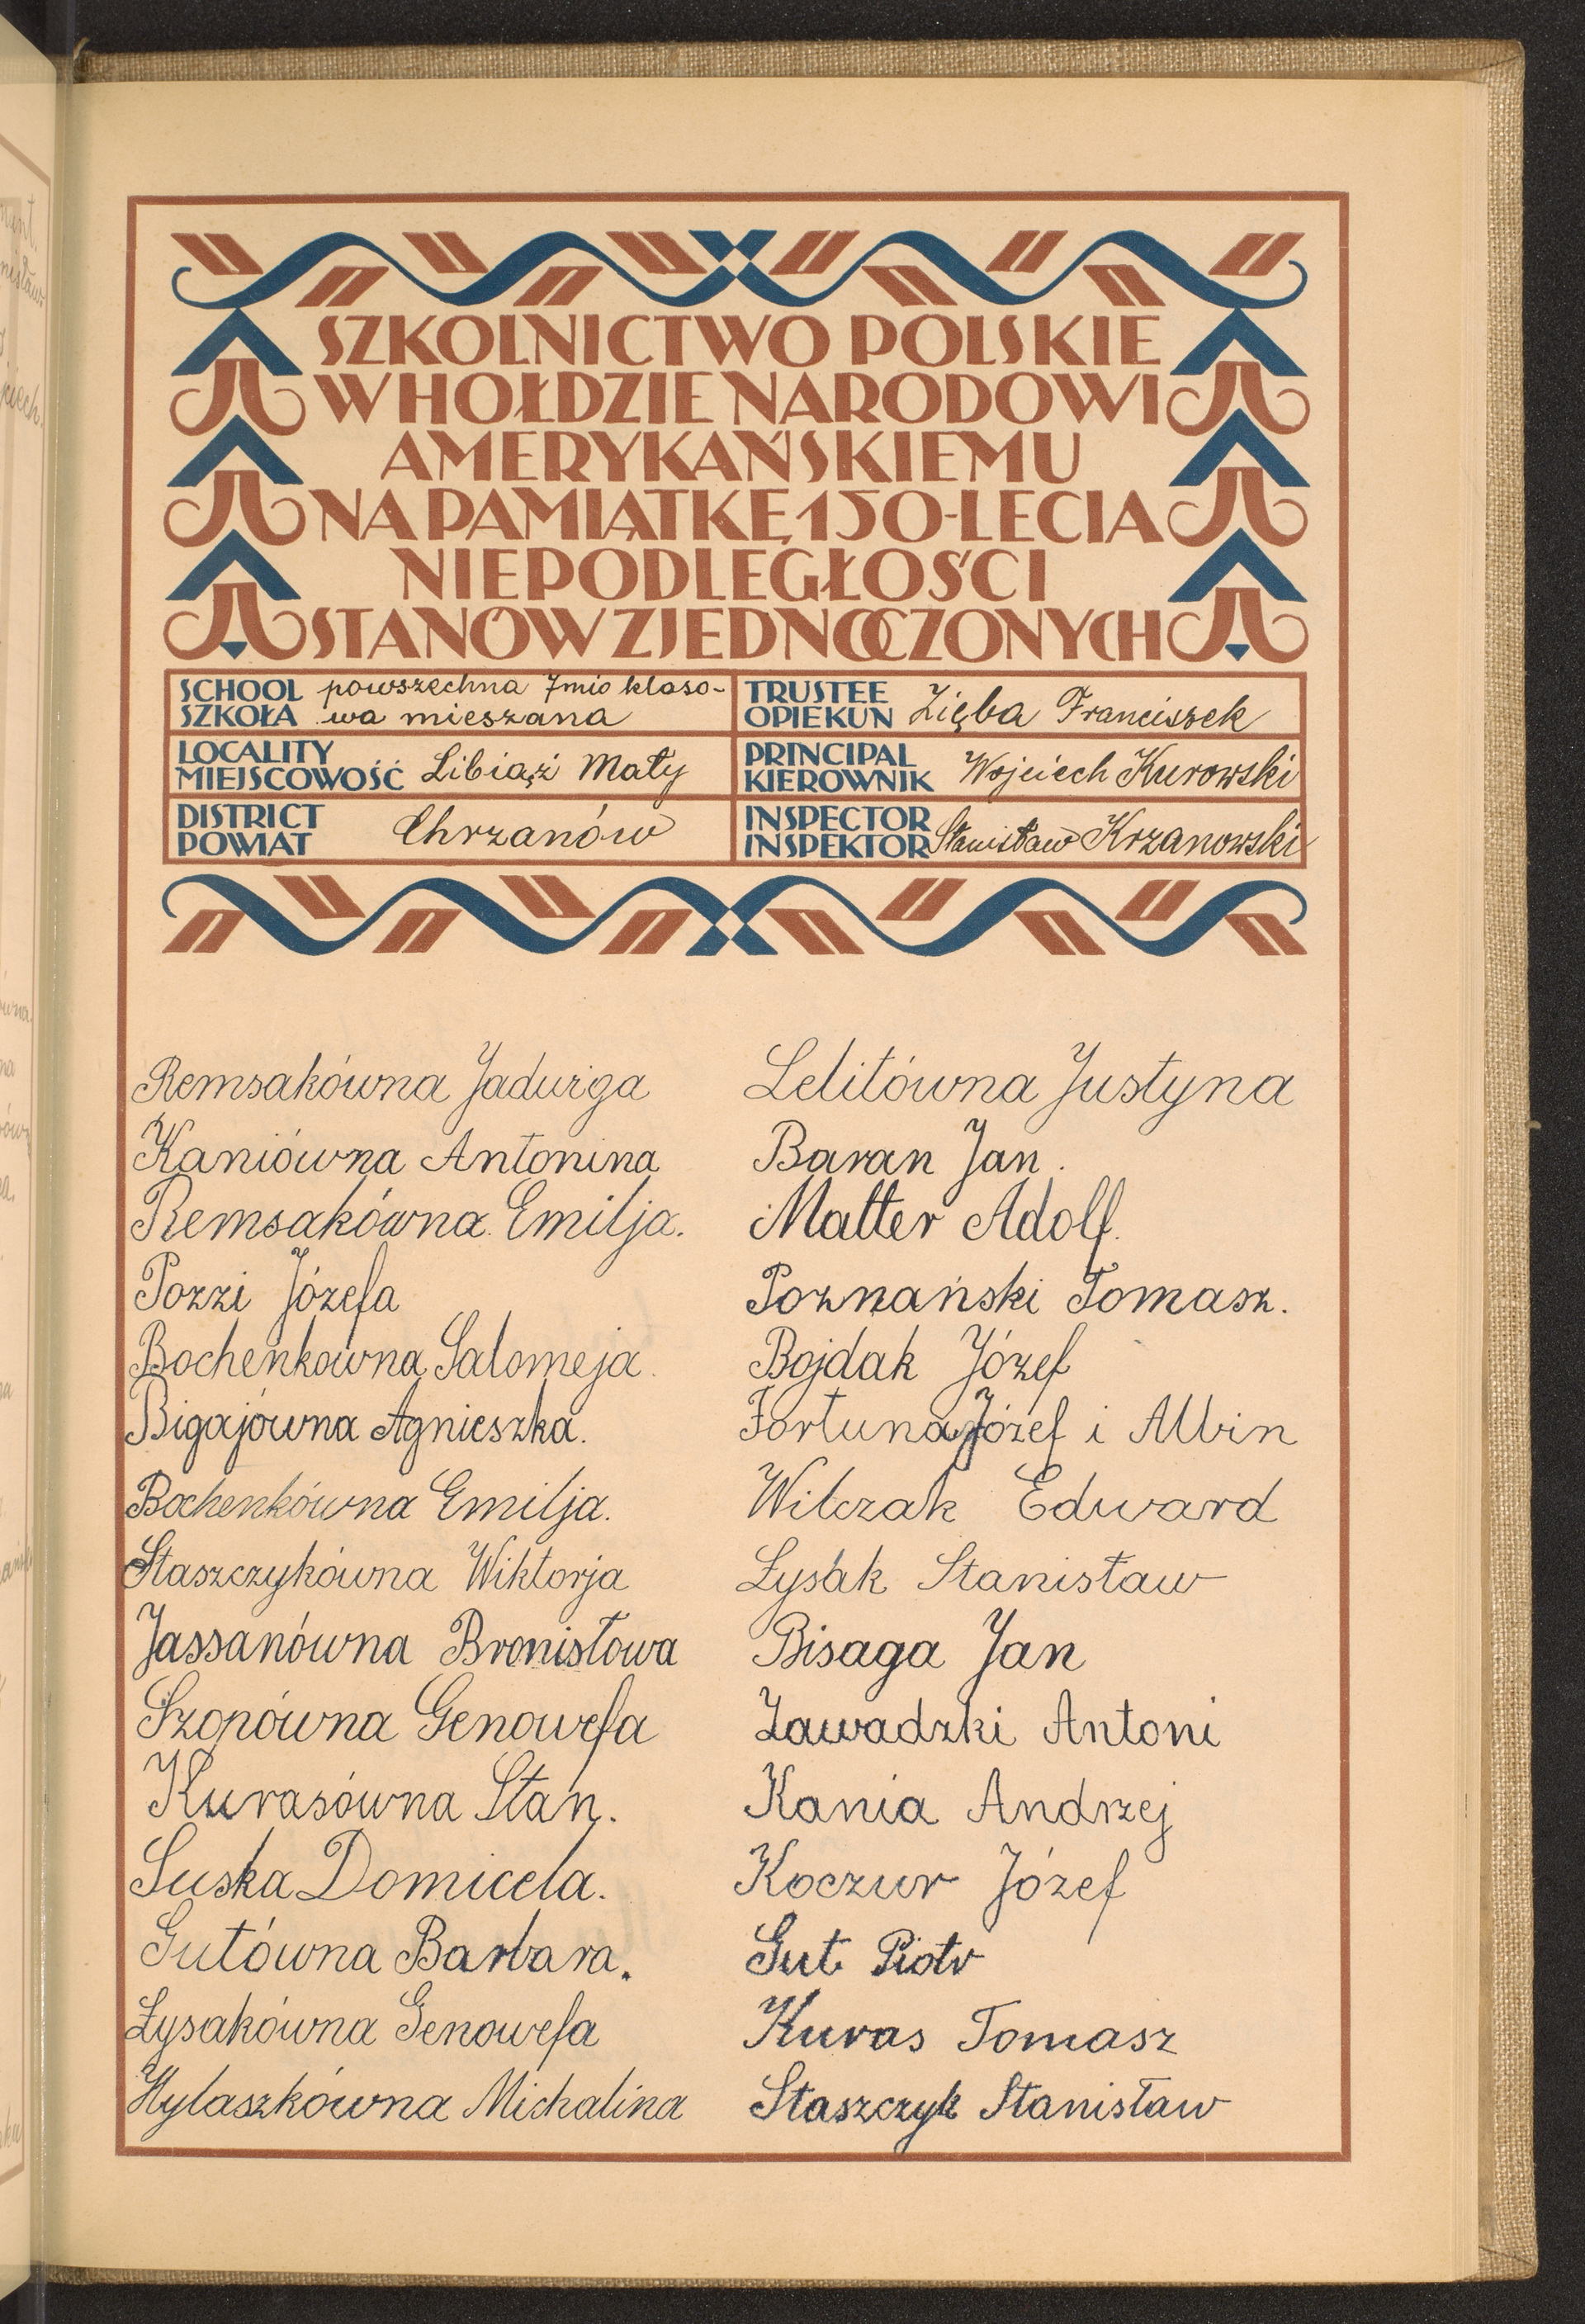 SZKOLNICTWO POLSKIE
W HOŁDZIE NARODOWI
AMERYKAŃSKIEMU
NA PAMIĄTKĘ 150-LECIA
NIEPODLEGŁOŚCI
STANÓW ZJEDNOCZONYCH
SCHOOL
SZKOŁA
powszechna 7mio klaso-
wa mieszana
TRUSTEE
OPIEKUN
Zięba Franciszek
LOCALITY
MIEJSCOWOŚĆ
Libiąż Mały
PRINCIPAL
KIEROWNIK
Wojciech Kurowski
DISTRICT
POWIAT
Chrzanów
INSPECTOR
INSPEKTOR
Stanisław Krzanowski
Remsakówna Jadwiga
Kaniówna Antonina
Remsakówna Emilja.
Pozzi Józefa
Bochenkówna Salomeja.
Bigajówna Agnieszka.
Bochenkówna Emilja.
Staszczykówna Wiktorja
Jassanówna Bronisłowa
Szopówna Genowefa
Kurasówna Stan.
Suska Domicela.
Gutówna Barbara.
Łysakówna Genowefa
Hylaszkówna Michalina
Lelitówna Justyna
Baran Jan.
Matter Adolf.
Poznański Tomasz.
Bojdak Józef
Fortuna Józef i Albin
Wilczak Edward
Łysak Stanisław
Bisaga Jan
Zawadzki Antoni
Kania Andrzej
Koczur Józef
Gut Piotr
Kuras Tomasz
Staszczyk Stanisław